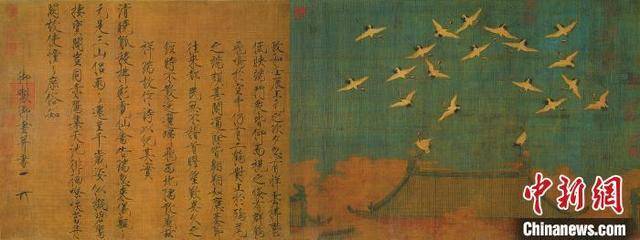 政和壬辰上元之次夕忽有祥雲拂鬱
低映端門眾皆仰而視之倏有群鶴
飛鳴於空中仍有二鶴對止於鴟尾
之端頗甚閑適餘皆翱翔如應奏節
往來都民無不稽首瞻望歎異久之
經時不散迤邐歸飛西北隅散感茲
祥瑞故作詩以紀其實
清曉觚稜拂彩霓仙禽告瑞忽來儀飄飄
元是三山侶兩兩還呈千歲姿似擬碧鸞
棲寶閣豈同赤雁集天池徘徊嘹唳當丹
闕故使憧憧庶俗知
御製御畫并書
中新网